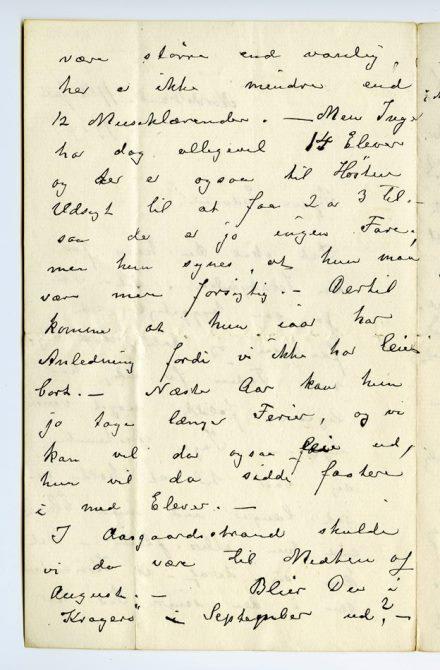 være større end vanlig,
her er ikke mindre end
12 Musiklærerinder. — Men Inger
har dog alligevel 14 Elever
og der er ogsaa til Høsten
Udsigt til at faa 2 a 3 til. —
saa der er jo ingen Fare,
men hun synes, at hun maa
være mer forsigtig. — Dertil
kommer at hun iaar har
Anledning fordi vi ikke har leiet
bort. — Næste Aar kan hun
jo tage længer Ferier, og vi
kan vel da ogsaa leie ud,
hun vil da sidde fastere
i med Elever. —
I Aasgaardsstrand skulde
vi da være til Midten af
August. — Blir Du i
Kragerø i September ud? —